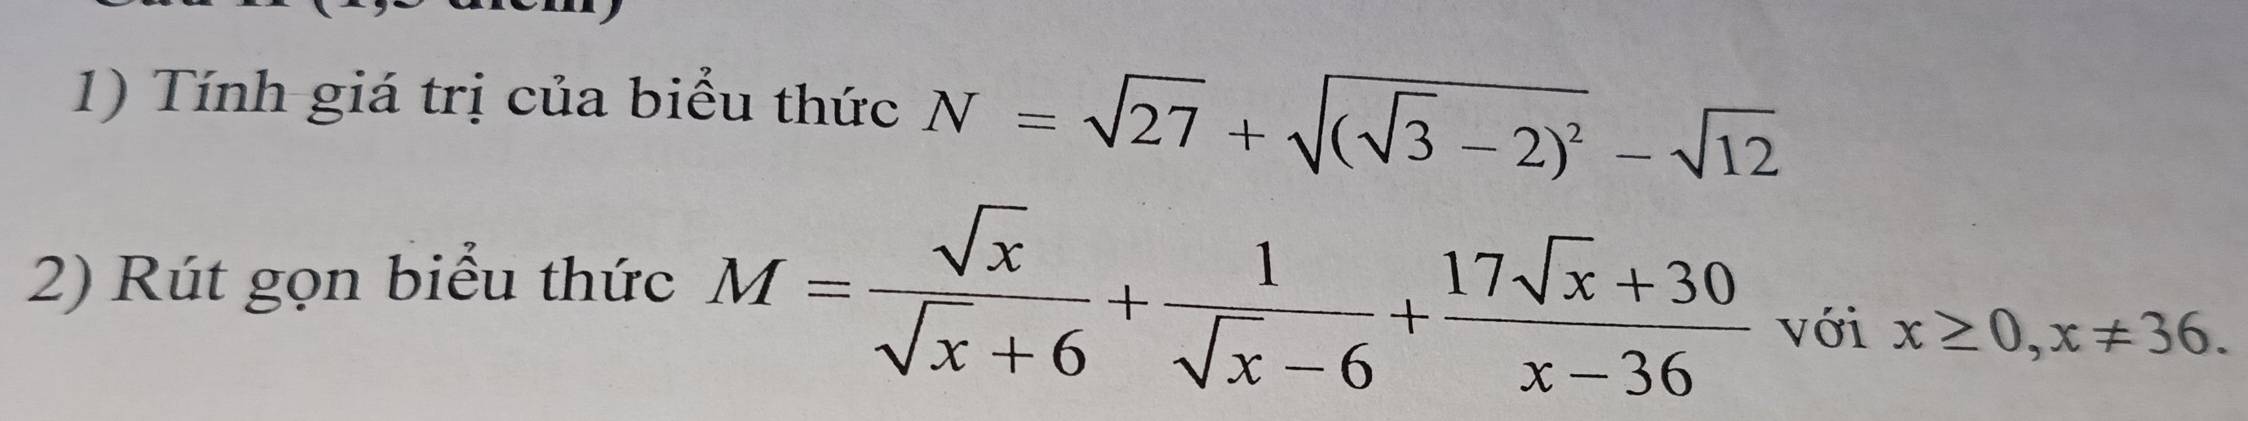 1) Tính giá trị của biểu thức N = √27 + √((√3 − 2)²) − √12
2) Rút gọn biểu thức M = √x/(√x + 6) + 1/(√x − 6) + (17√x + 30)/(x − 36) với x ≥ 0, x ≠ 36.